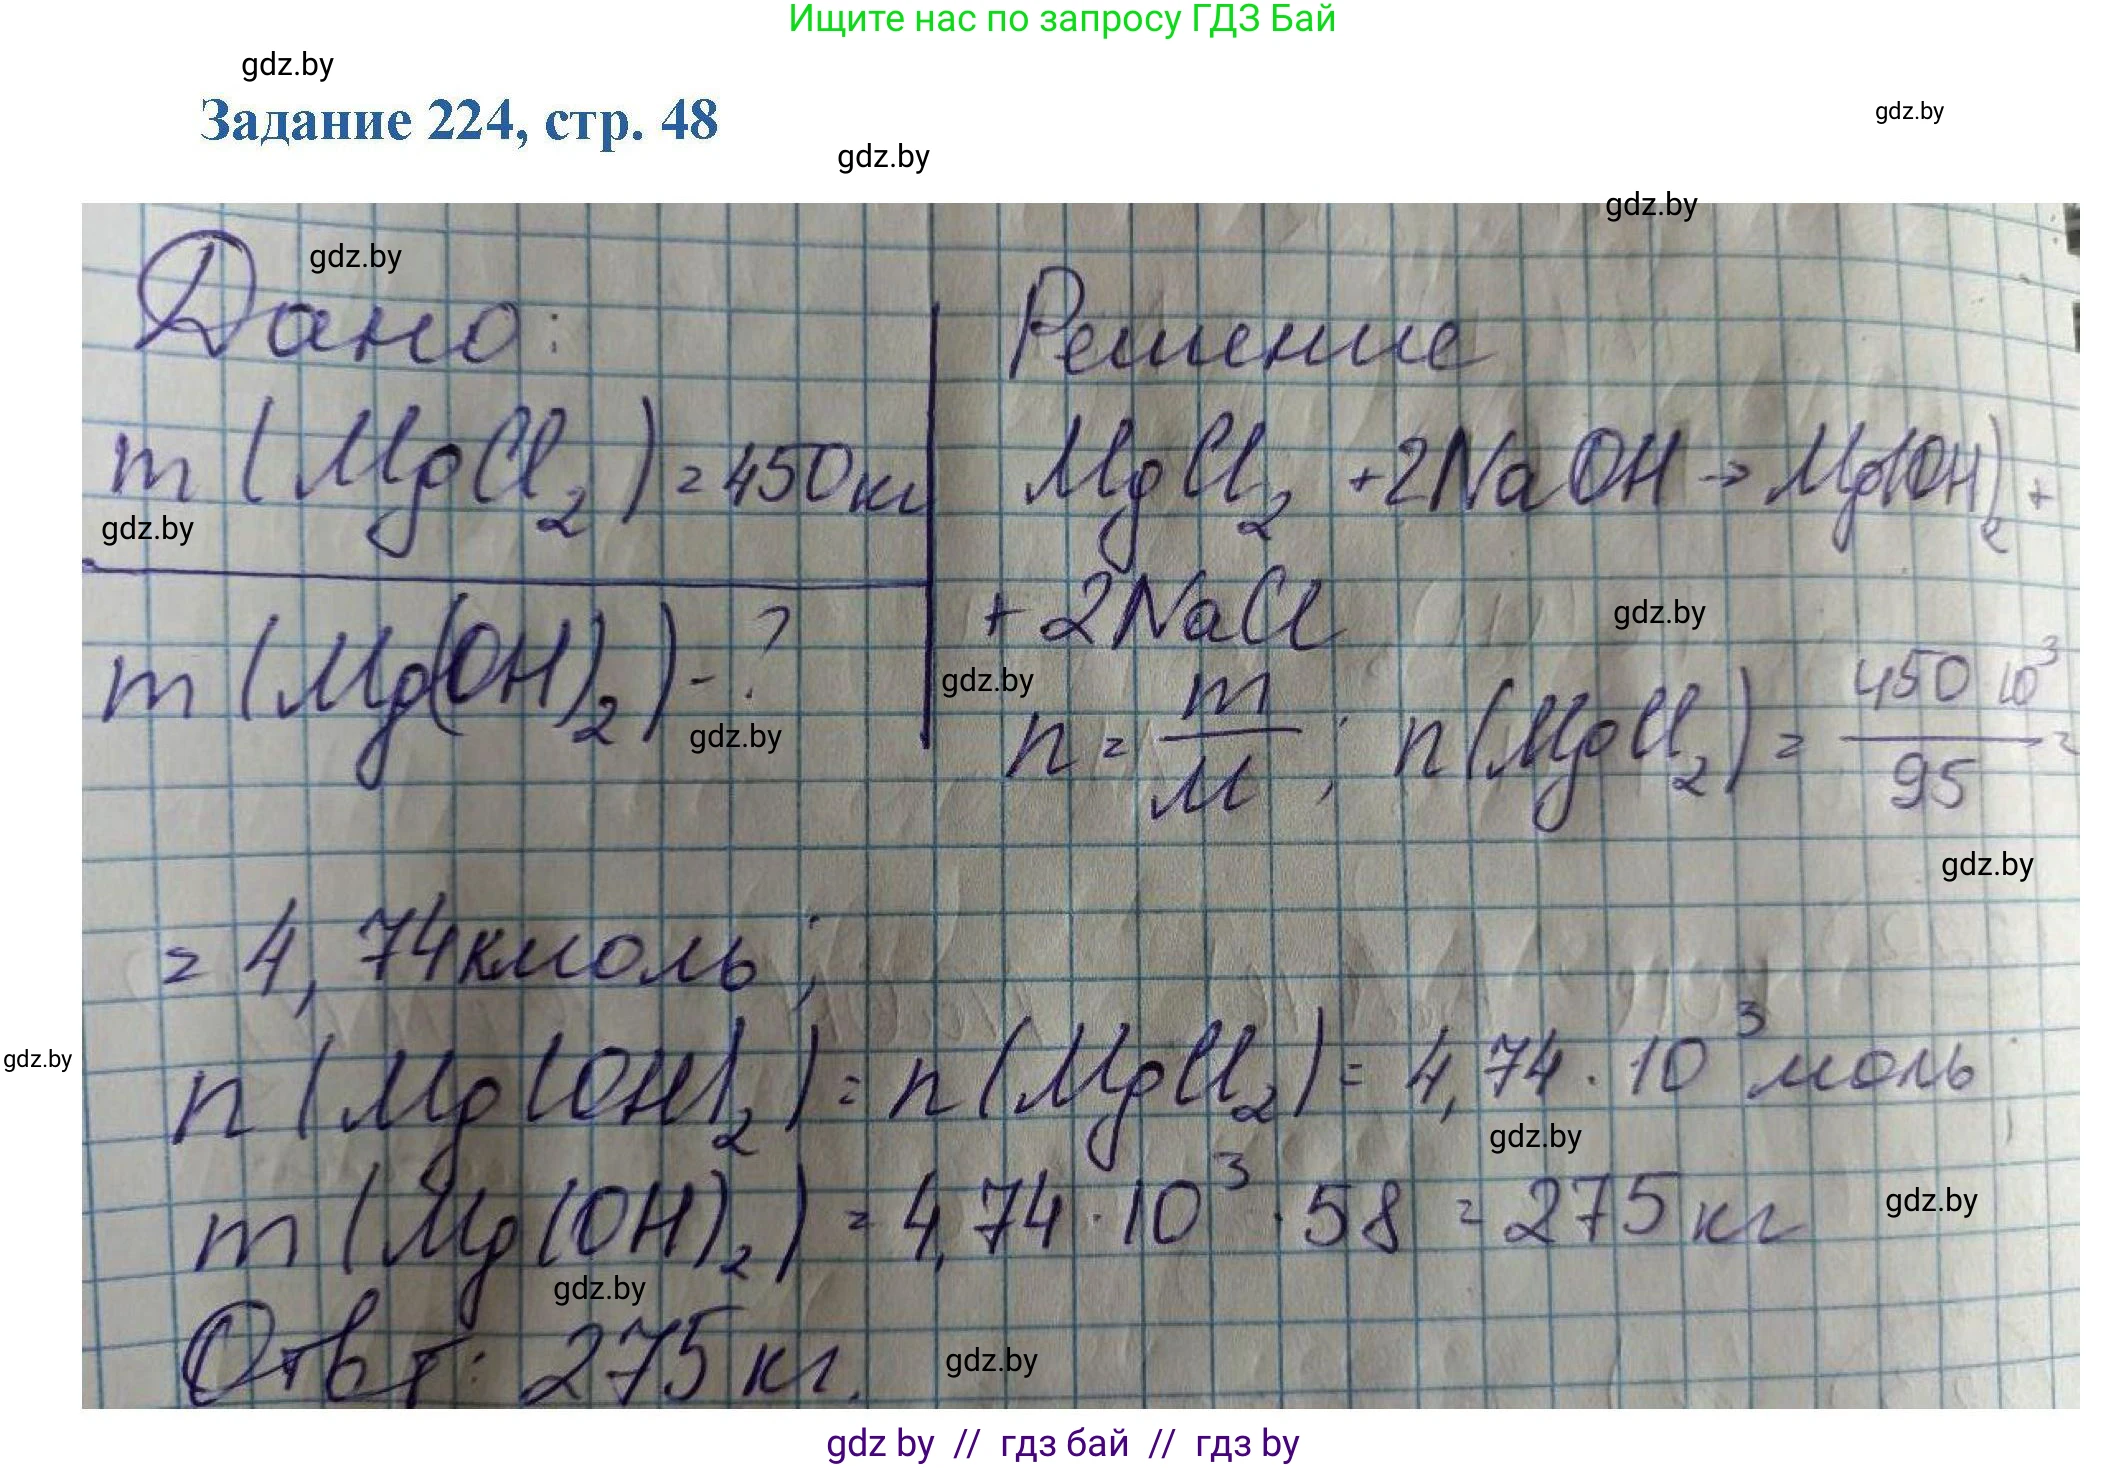 Ищите нас по запросу ГДЗ Бай
gdz.by
Задание 224, стр. 48
gdz.by
gdz.by
gdz.by
gdz.by
Дано:
Решение
m(MgCl₂)=450кг
MgCl₂ +2NaOH → Mg(OH)₂ +
gdz.by
+ 2NaCl
gdz.by
m(Mg(OH)₂)-?
gdz.by
gdz.by
n = m/M ; n(MgCl₂) = 450·10³/95 =
gdz.by
= 4,74кмоль;
n(Mg(OH)₂) = n(MgCl₂) = 4,74 · 10³ моль
gdz.by
gdz.by
m(Mg(OH)₂) = 4,74·10³ · 58 = 275 кг
gdz.by
gdz.by
Ответ: 275 кг.
gdz.by
gdz by // гдз бай // гдз by